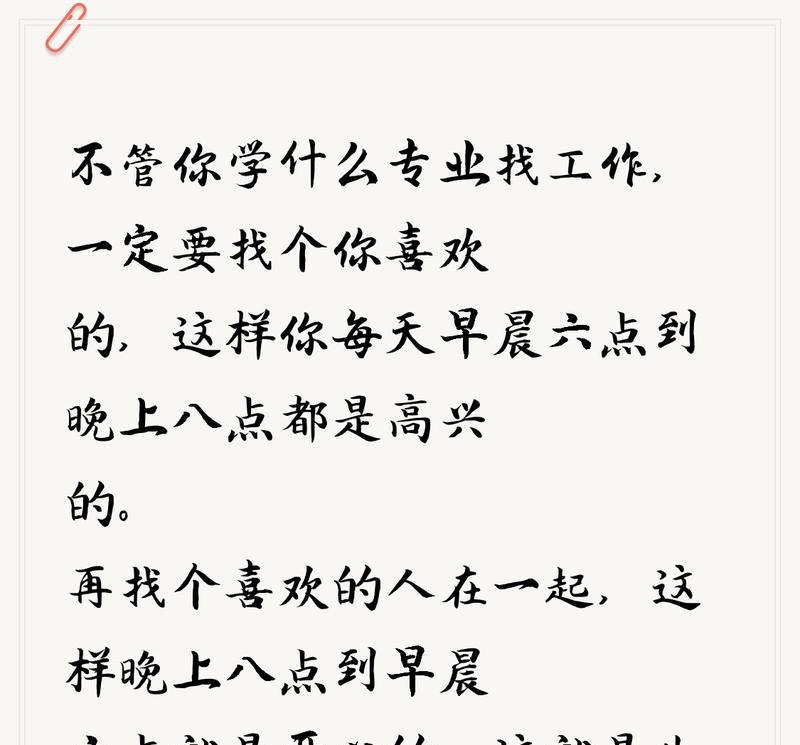 不管你学什么专业找工作,
一定要找个你喜欢
的, 这样你每天早晨六点到
晚上八点都是高兴
的。
再找个喜欢的人在一起, 这
样晚上八点到早晨